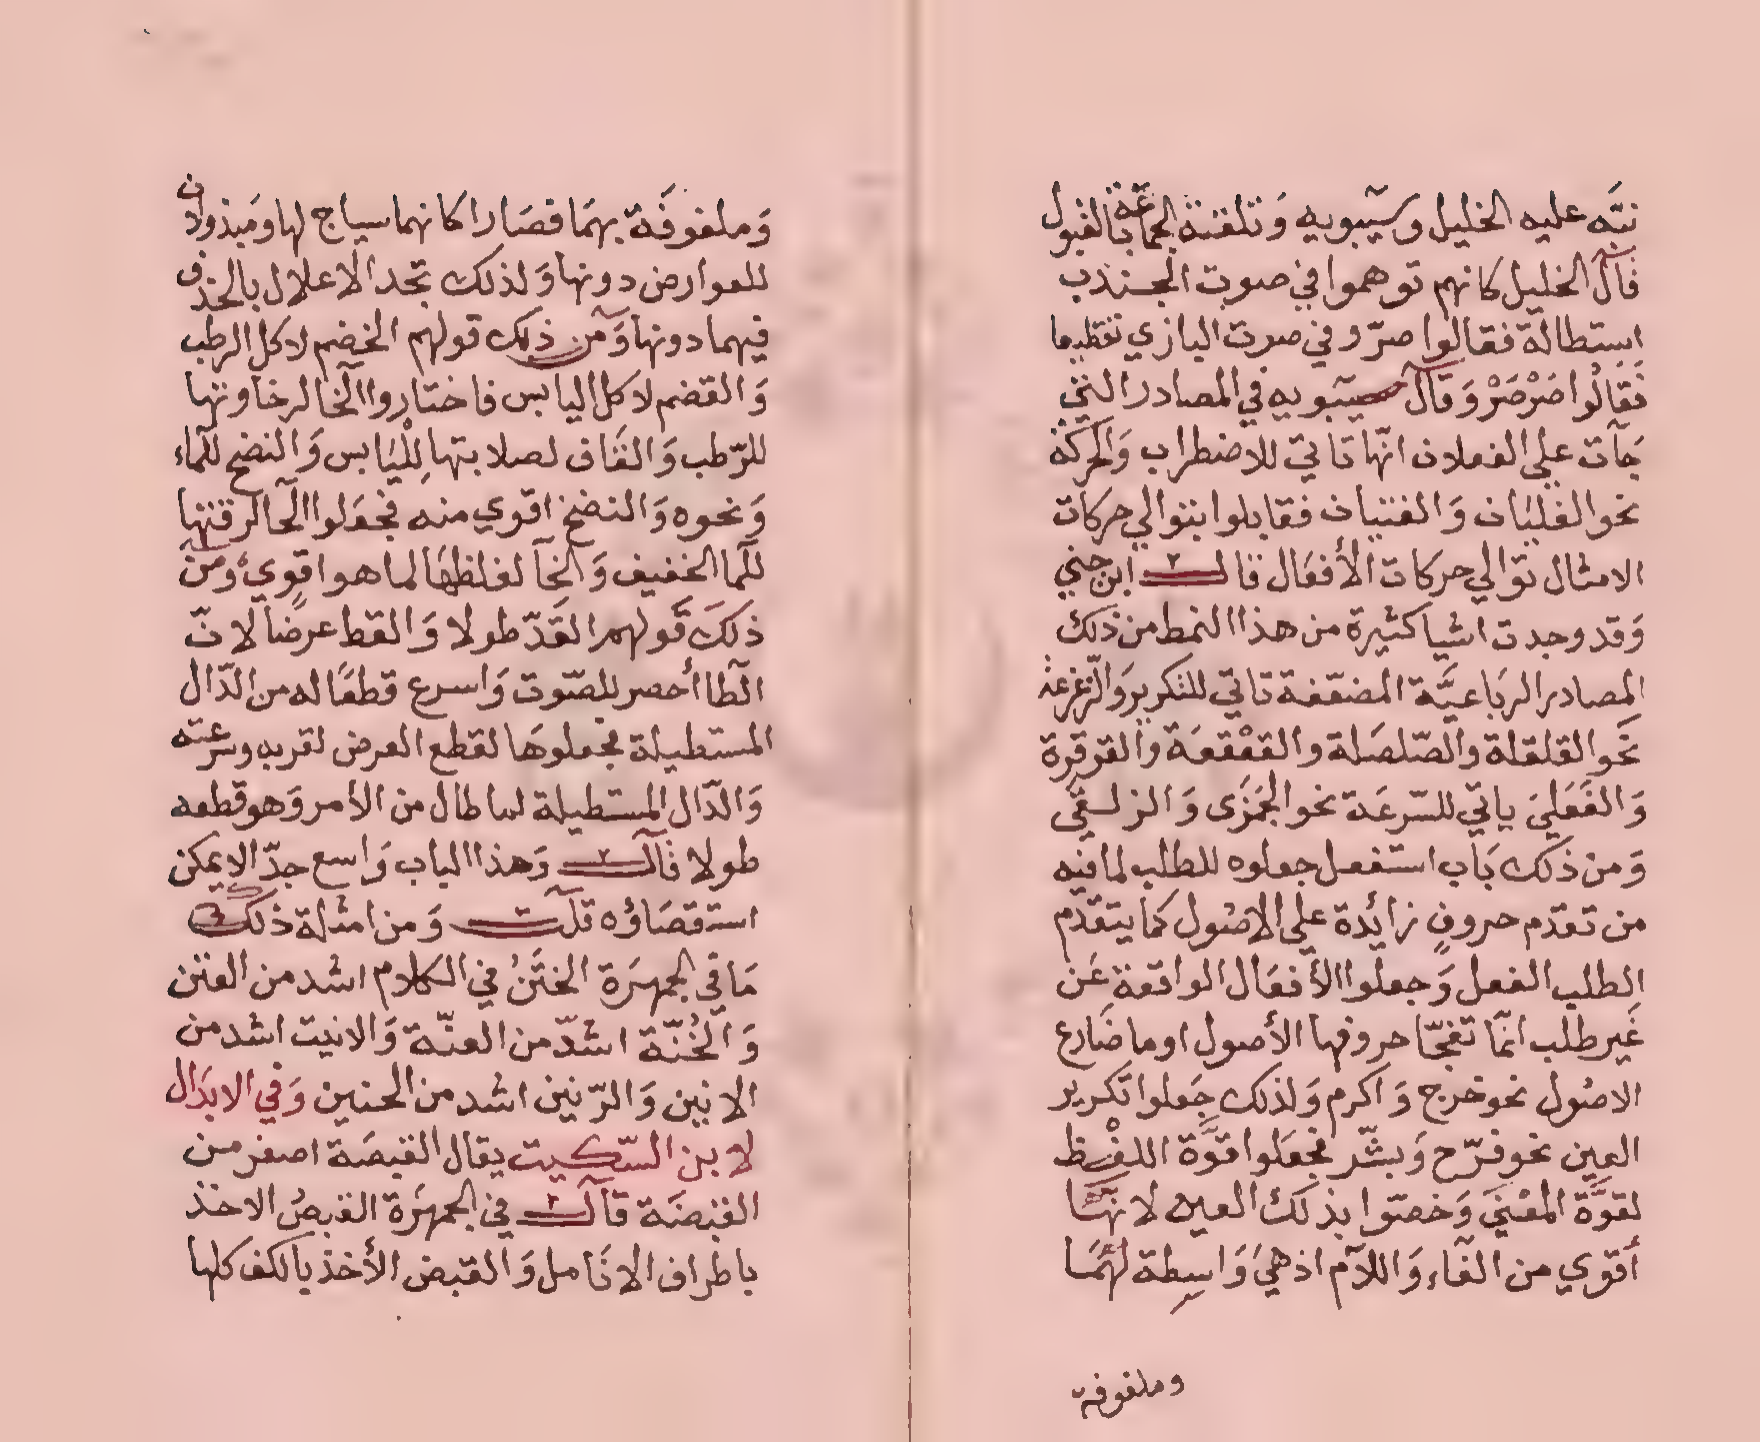 نبّه عليه الخليل وسيبويه وَتلقته الجماعة بالقبول
قال الخليل كانهم توهموا في صوت الجندب
استطالة فقالوا صرّ وفي صوت البازي تقطيعا
فَقالوا صَرْصَرْ وَقال سيبويه في المصادر التي
جَآت علي الفعلان انّها تاتي للاضطراب وَالحركة
نحو الغليَان وَالغثيان فقابلوا بتوالي حركات
الامثال توالي حركات الأفعَال قالــ ابن جني
وَقد وجدت اشيا كثيرة من هذا النمط من ذلك
المصادر الربَاعيَّة المضعّفة تاتي للتكرير وَالزعزعة
نحَو القلقلة والصّلصَلة والقعْقعَة والقرقرة
وَالفَعَليَ ياتي للسّرعَة نحو الجَمَزَى وَالزلقَى
وَمن ذلك بَاب استفعل جعلوه للطلب لما فيه
من تقدّم حروفٍ زائدة علي الاصُول كما يتقدّم
الطلب الفعل وَجعلوا الأفعَال الواقعة عَن
غَير طلب انّما تفجّا حروفها الأصول او ما ضَارع
الاصُول نحو خرج وَاكرم وَلذلك جَعلوا تكرير
العين نحو فرّح وَبشّر فجعَلوا قوَّة اللفْظ
لقوَّة المعْنَي وَخصّوا بذلك العين لانهَّا
أقوي من الفَاء وَاللآم اذ هيَ وَاسِطة لهَمَا
وملفوفة
وَملفوفَة بهمَا فصَارا كانهما سياج لها وَمبذولان
للعوارض دونها وَلذلك تجد الاعلال بالحذف
فيهما دونها وَمن ذلك قولهم الخضم لاكل الرطب
وَالقضم لاكل اليابس فاختاروا الخا لرخاوتها
للرّطب وَالقَاف لصلابتها لِلْيَابس وَالنضح للمآء
وَنحوه وَالنضخ اقوي منه فجعَلوا الحا لرقتها
للمآ الخفيف وَالخآ لغلظهَا لما هو اقوي ومن
ذلكَ قولهم القَدّ طولا وَالقط عرضًا لانّ
الطا أحصر للصّوت وَاسرع قطعًا له من الدّال
المستطيلة فجعلوهَا لقطع العرض لقربه وسرعته
وَالدّال المستطيلة لما طال من الأمر وَهو قطعه
طولا قالــ وَهذا الباب وَاسع جدّا لا يمكن
استقصَاؤه قلتــ وَمن امثلة ذلك
مَا في الجمهرَة الخنَنُ في الكلام اشد من الغنن
وَالخُنّة اشدّ من الغنّة وَالانيت اشد من
الانين وَالرّنين اشد من الحنين وَفي الابدَال
لابن السّكيت يقال القبصَة اصغر من
القبضَة قالــ في الجمهرَة القبصُ الاخذ
باطراف الانَامل وَالقبض الأخذ بالكف كلها